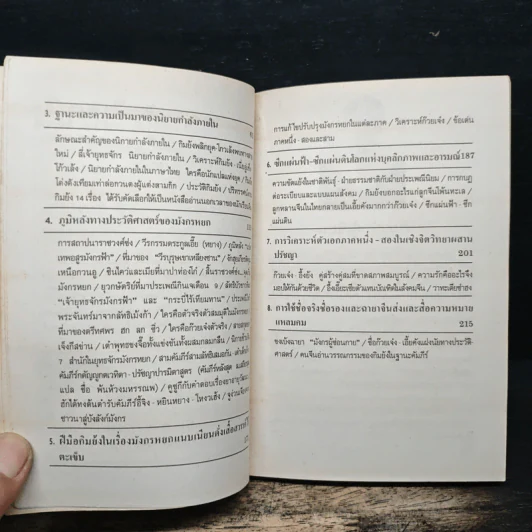 3. ฐานะและความเป็นมาของนิยายกำลังภายใน
ลักษณะสำคัญของนิยายกำลังภายใน / กิมย้งพลิกยุค-โกวเล้งพบทาง
ใหม่ / ลี้เจ้ายุทธจักร นิยายกำลังภายใน / วิเคราะห์กิมย้ง -
โก้วเล้ง / นิยายกำลังภายในในภาษาไทย ใครคือนักแปลแห่งยุค /
โด่งดังเทียมเท่าต่อกวนตงผู้แต่งสามก๊ก / ประวัติกิมย้ง /
กิมย้ง 14 เรื่อง ได้รับคัดเลือกให้เป็นหนังสืออ่านนอกเวลาของนักเรียน
4. ภูมิหลังทางประวัติศาสตร์ของมังกรหยก
การสถาปนาราชวงศ์ซ่ง / วีรกรรมตระกูลเอี้ย (หยาง) / ภูมิหลัง
เทพอสูรมังกรฟ้า" / ที่มาของ "วีรบุรุษเขาเหลียงซาน" /
เหนือกวนอู / ชินไคว่และเมียที่มาปาท่องโก๋ / สิ้นราชวงศ์ซ่ง
มังกรหยก / ยุวกษัตริย์ที่มาประเพณีกินเจเดือน ๑ /
"เจ้ายุทธจักรมังกรฟ้า" และ "กระบี่ไร้เทียมทาน" /
พระจันทร์มาจากลัทธิเม้งก่า / ใครคือตัวจริงตัวสมมุติในมังกรหยก
ที่มาของตรีทศพร ฮก ลก ซิ่ว / ใครคือก๊วยเจ๋งตัวจริง /
เจ็งกีสข่าน / เต๋าพุทธขงจื๊อทั้งแข่งขันทั้งผสมกลมกลืน /
7 สำนักในยุทธจักรมังกรหยก / สามคัมภีร์สามลัทธิเสมอกัน
คัมภีร์กตัญญูกตเวทิตา - ปรัชญาปารมิตาสูตร
แปล ชื่อ พันห้วงมหรรณพ) /
ฮักไต้ทงต้นตำรับคัมภีร์อี้จิง - หยินหยาง - ไทงวเฮ้ง /
ชาวนาสู่บัลลังก์มังกร
5. ฝีมือกิมย้งในเรื่องมังกรหยกแนบเนียนดั่งเสื้อสวรรค์ไร้
ตะเข็บ
การแก้ไขปรับปรุงมังกรหยกในแต่ละภาค / วิเคราะห์ก๊วยเจ๋ง / ข้อเด่น
ภาคหนึ่ง - สองและสาม
6. ซีกแผ่นฟ้า-ซีกแผ่นดินโลกแห่งบุคลิกภาพและอารมณ์ 187
ความขัดแย้งในชาติพันธุ์ - ฝ่ายธรรมชาติกับฝ่ายประเพณีนิยม / การกบฏ
ต่อระเบียบและแบบแผนสังคม / กิมย้งบอกอะไรแก่ลูกจีนโพ้นทะเล /
ลูกหลานจีนในไทยกลายเป็นเอี้ยคังมากกว่าก๊วยเจ๋ง / ซีกแผ่นฟ้า - ซีก
แผ่นดิน
7. การวิเคราะห์ตัวเอกภาคหนึ่ง - สองในเชิงจิตวิทยาผสาน
ปรัชญา 201
ก๊วยเจ๋ง - อึ้งย้ง คู่สร้างคู่สมที่ขาดสภาพสมบูรณ์ / ความรักคืออะไรจึง
มอบได้กันด้วยชีวิต / อึ้งเอี๊ยะซือตัวแทนเป็นทิตในสังคมจีน / วาทะเตียซำฮง
8. การใช้ชื่อจริงชื่อรองและฉายาจีนส่งและสื่อความหมาย
แหลมคม 215
ขงเบ้งฉายา "มังกรผู้ซ่อนกาย" / ชื่อก๊วยเจ๋ง - เอี้ยคังแฝงนัยทางประวัติ-
ศาสตร์ / คนจีนอ่านวรรณกรรมของกิมย้งในฐานะคัมภีร์